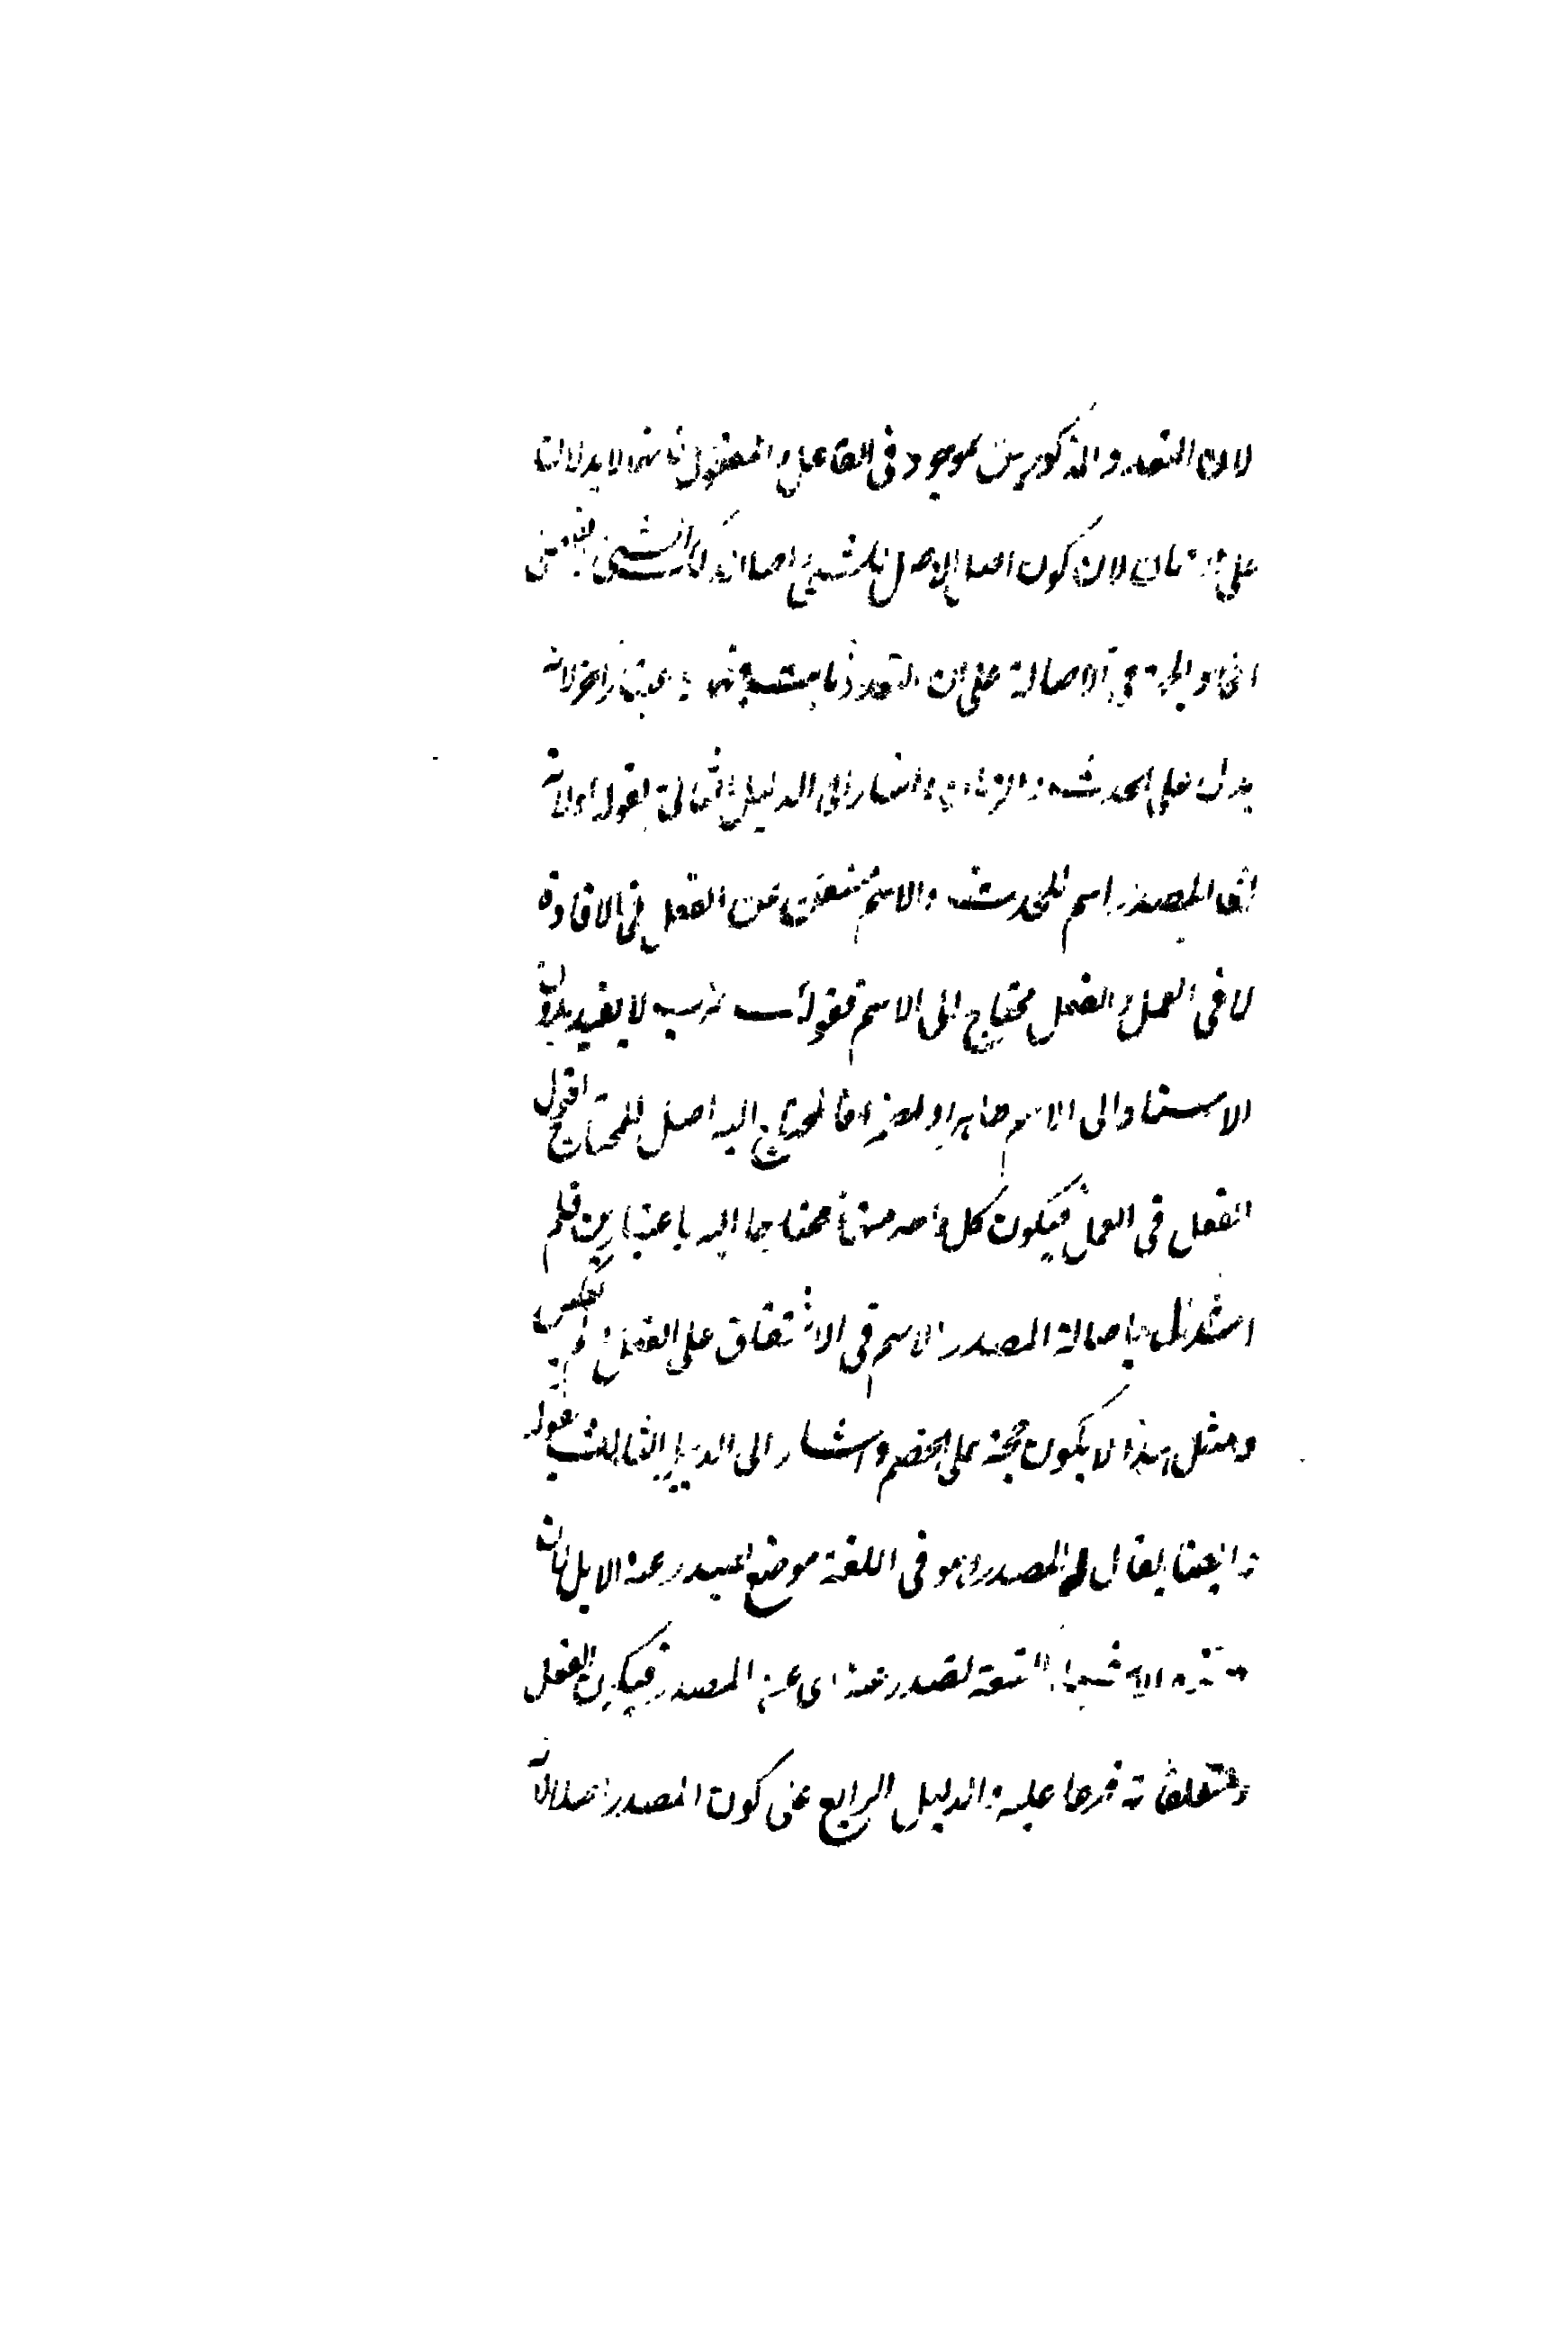 لان التعدد المذكورين موجود في الفاعل والمفعول فانهما لا يدلان
على الزمان لان كون اصل الاصل للشيئ اصالة لذلك الشيئ
اتحاد الجهة في الاصالة على ان التعدد باعتبار اخر لانه
يدل على الحدث والزمان واشار الى الدليل الثاني بقوله ولانه
ايضا المصدر اسم للحدث والاسم مستغن عن الفعل في الافادة
لا في العمل والفعل محتاج الى الاسم فقولك ضرب لا يفيد بدون
الاسناد الى الاسم ظاهرا او مضمرا فالمحتاج اليه اصل للمحتاج اقول
الفعل في العمل فيكون كل واحد منهما محتاجا اليه باعتبارين فلم
استدل باصالة المصدر الاسم في الاشتقاق على الفعل ولم يعكس
ومثل هذا لا يكون حجة على الخصم واشار الى الدليل الثالث بقوله
وايضا يقال له المصدر وهو في اللغة موضع يصدر عنه الابل لان
هذه الاشياء التسعة تصدر عنه اى عن المصدر فيكون الفعل
ومتعلقاته فرعا عليه والدليل الرابع على كون المصدر اصلا لانه